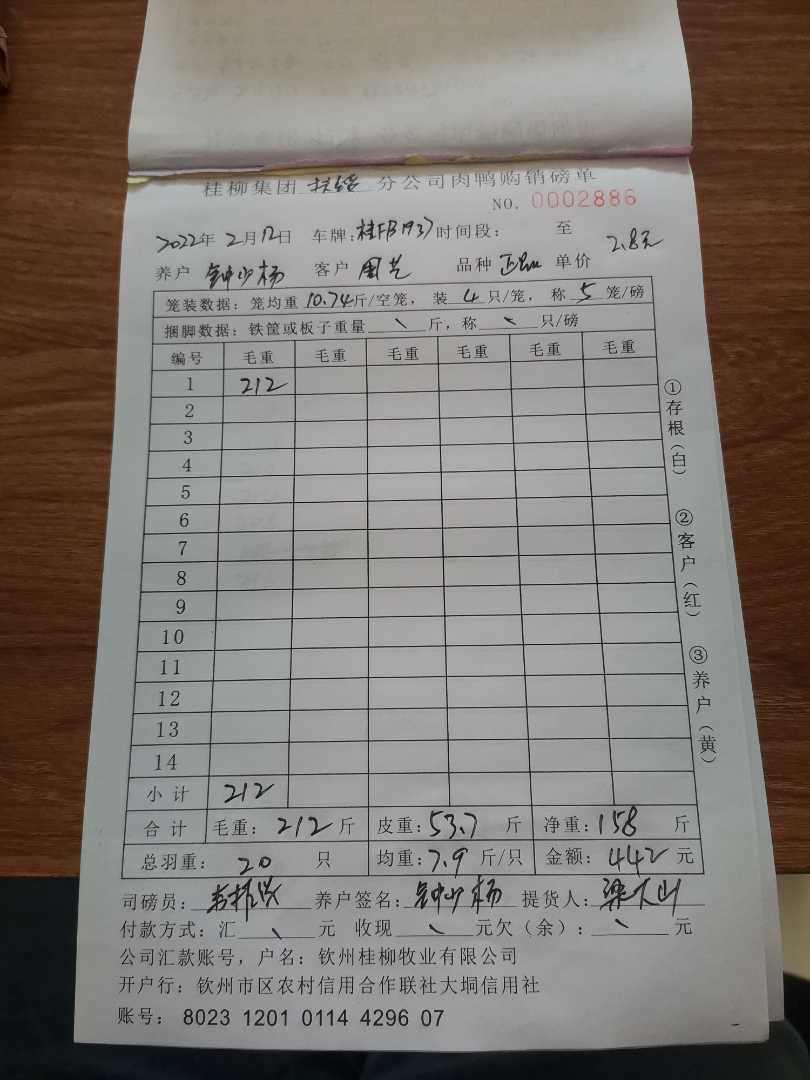 桂柳集团 扶绥 分公司肉鸭购销磅单
NO. 0002886
2022年 2月12日 车牌: 时间段: 至
养户 钟小杨 客户 周艺 品种 单价 2.8元
笼装数据: 笼均重 10.74 斤/空笼, 装 4 只/笼, 称 5 笼/磅
捆脚数据: 铁筐或板子重量 \ 斤, 称 \ 只/磅
编号 毛重 毛重 毛重 毛重 毛重 毛重
1 212
2
3
4
5
6
7
8
9
10
11
12
13
14
小计 212
合计 毛重: 212 斤 皮重: 53.7 斤 净重: 158 斤
总羽重: 20 只 均重: 7.9 斤/只 金额: 442 元
司磅员: 养户签名: 钟小杨 提货人:
付款方式: 汇 \ 元 收现 \ 元欠(余): \ 元
公司汇款账号, 户名: 钦州桂柳牧业有限公司
开户行: 钦州市区农村信用合作联社大垌信用社
账号: 8023 1201 0114 4296 07
①存根(白)
②客户(红)
③养户(黄)